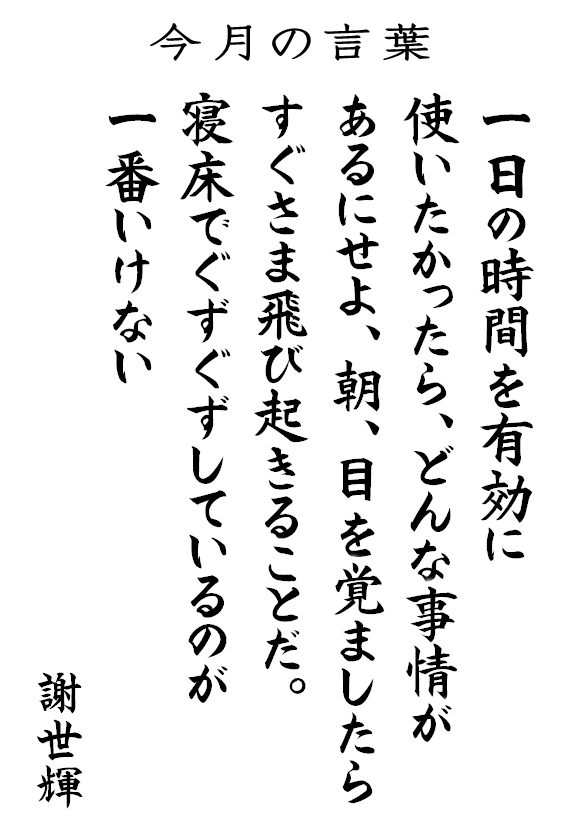 今月の言葉
一日の時間を有効に
使いたかったら、どんな事情が
あるにせよ、朝、目を覚ましたら
すぐさま飛び起きることだ。
寝床でぐずぐずしているのが
一番いけない
謝世輝